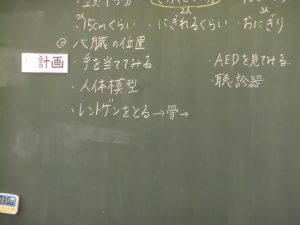 15cmくらい ・にぎれるくらい ・おにぎり
◎ 心臓の位置
計画
・手を当ててみる
・人体模型
・レントゲンをとる→骨→
・AEDを見てみる
・聴診器